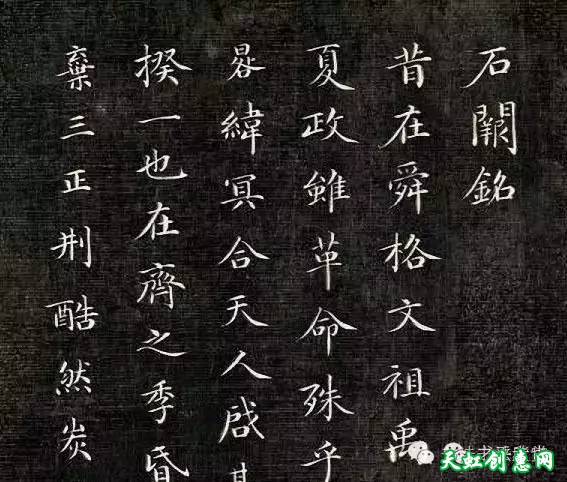 石闕銘
昔在舜格文祖禹
夏政雖革命殊乎
晷緯冥合天人啟
揆一也在齊之季昏
棄三正刑酷然炭
天虹创惠网